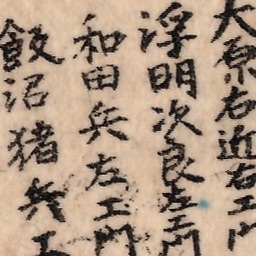 大原右近右エ門
浮明次良左エ門
和田兵左エ門
飯沼猪兵エ